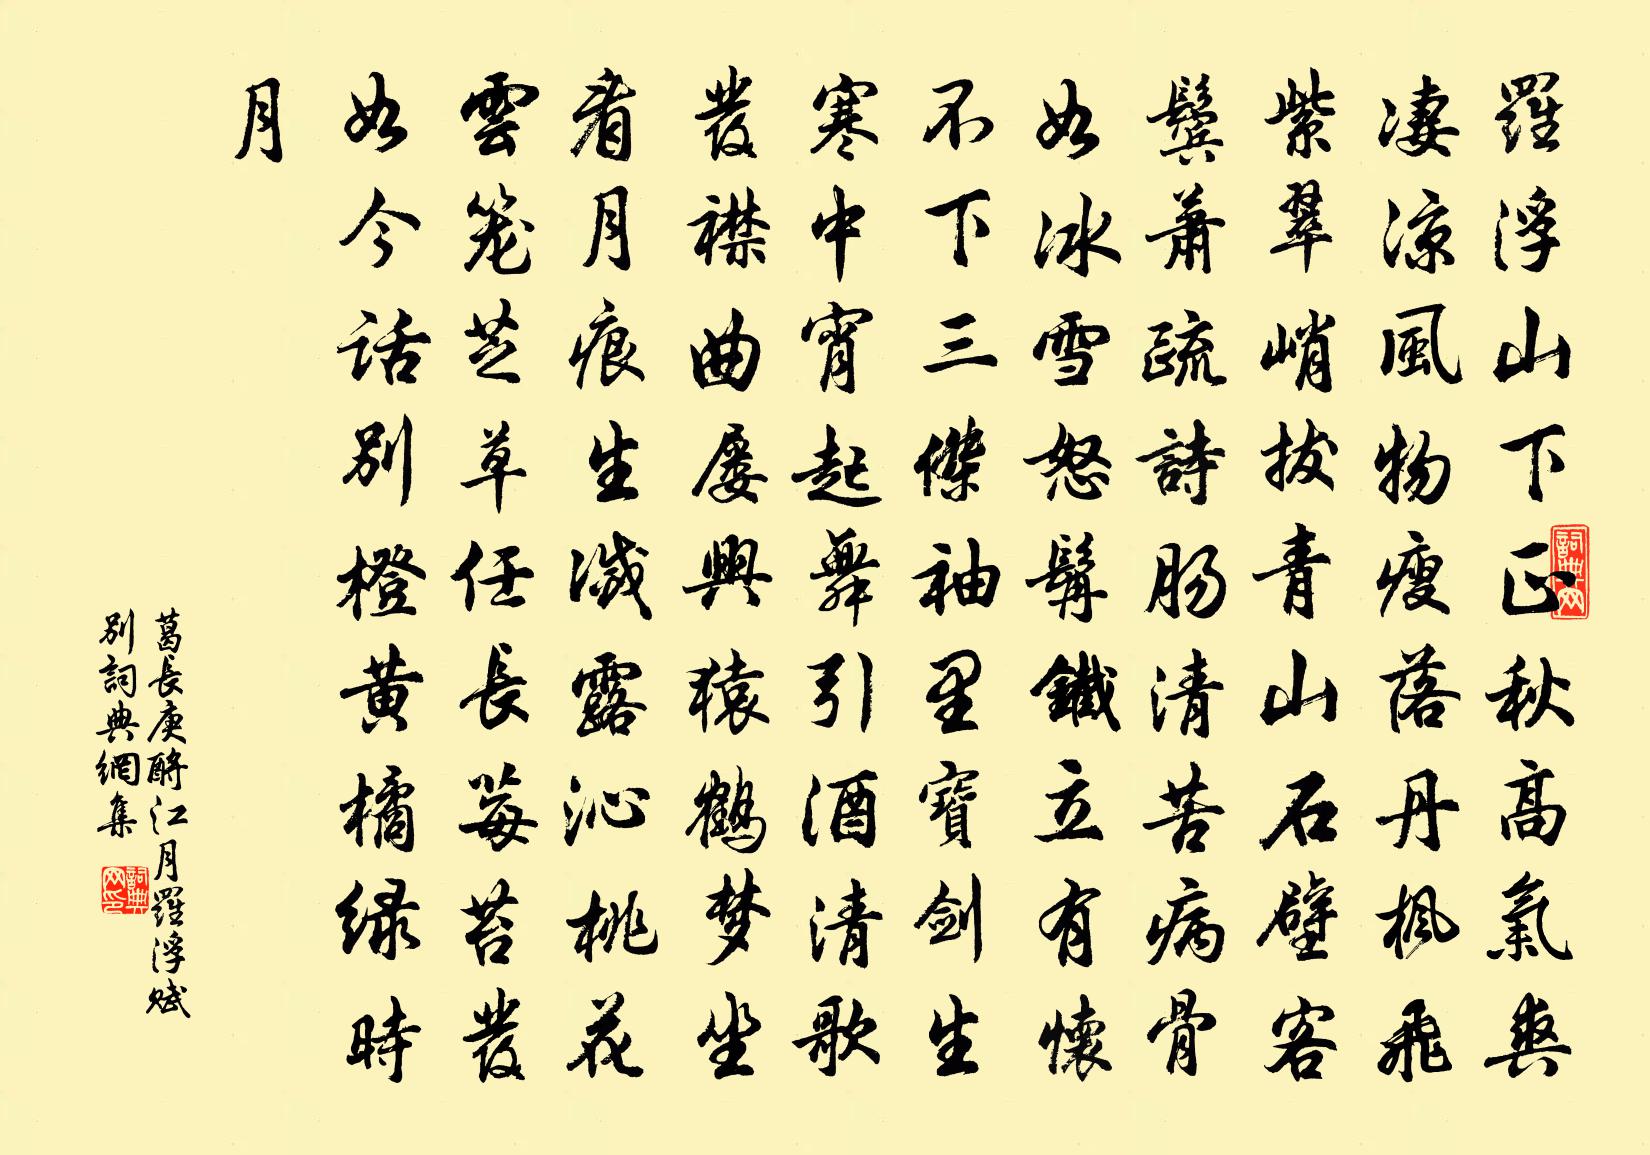 羅浮山下正秋高氣爽
淒涼風物瘦落丹楓飛
紫翠峭拔青山石壁客
鬢蕭疏詩腸清苦病骨
如冰雪怒髯鐵立有懷
不下三傑袖里寶劍生
寒中宵起舞引酒清歌
發襟曲屡興猿鶴梦坐
看月痕生滅露沁桃花
雲笼芝草任長莓苔發
如今話別橙黄橘緑時
月
葛長庚酹江月羅浮賦
別詞典網集
詞典网
詞典网印